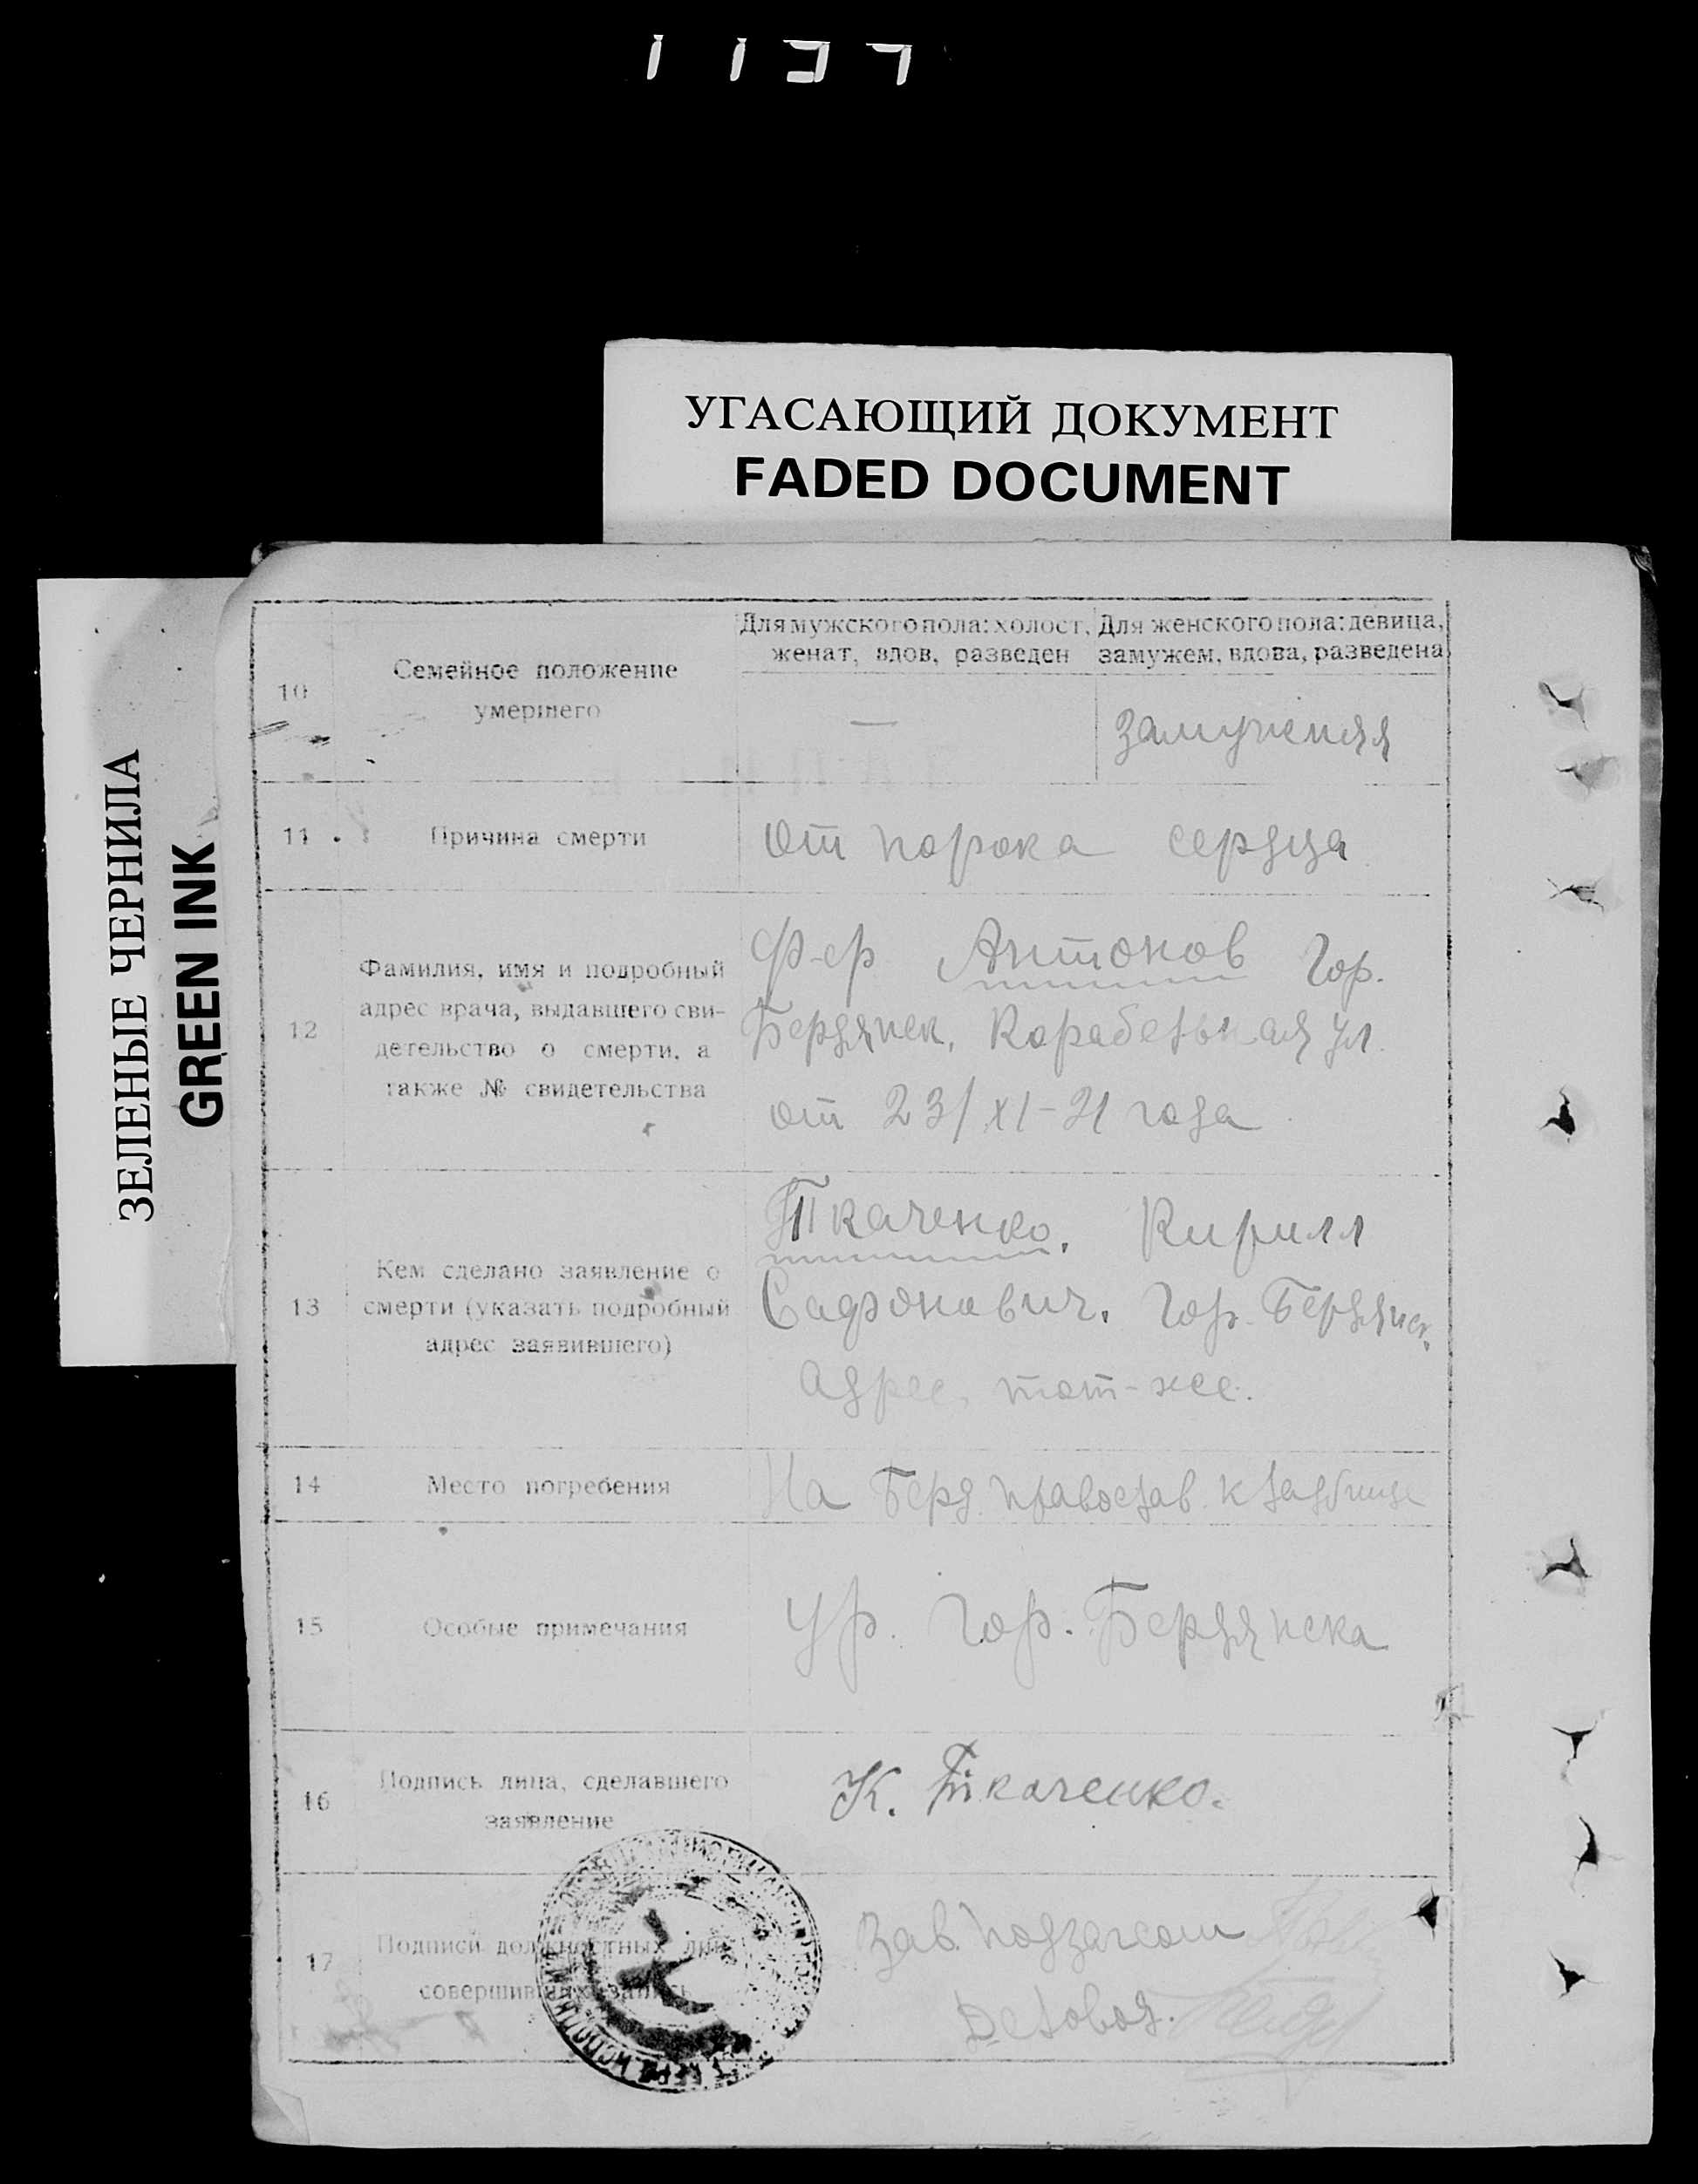 1137
УГАСАЮЩИЙ ДОКУМЕНТ
FADED DOCUMENT
ЗЕЛЕНЫЕ ЧЕРНИЛА
GREEN INK
10
Семейное положение
умершего
Для мужского пола: холост,
женат, вдов, разведен
—
Для женского пола: девица,
замужем, вдова, разведена
замужняя
11
Причина смерти
от порока сердца
12
Фамилия, имя и подробный
адрес врача, выдавшего сви-
детельство о смерти, а
также № свидетельства
Ф-ер Антонов Гор.
Бердянск, Корабельная ул.
от 23/XI-21 года
13
Кем сделано заявление о
смерти (указать подробный
адрес заявившего)
Ткаченко, Кирилл
Сафонович. Гор. Бердянск.
Адрес, тот-же.
14
Место погребения
На Берд. православ. кладбище
15
Особые примечания
Ур. Гор. Бердянска
16
Подпись лица, сделавшего
заявление
К. Ткаченко.
17
Подписи должностных лиц,
совершивших запись
Зав. подзагсом
Деловод.